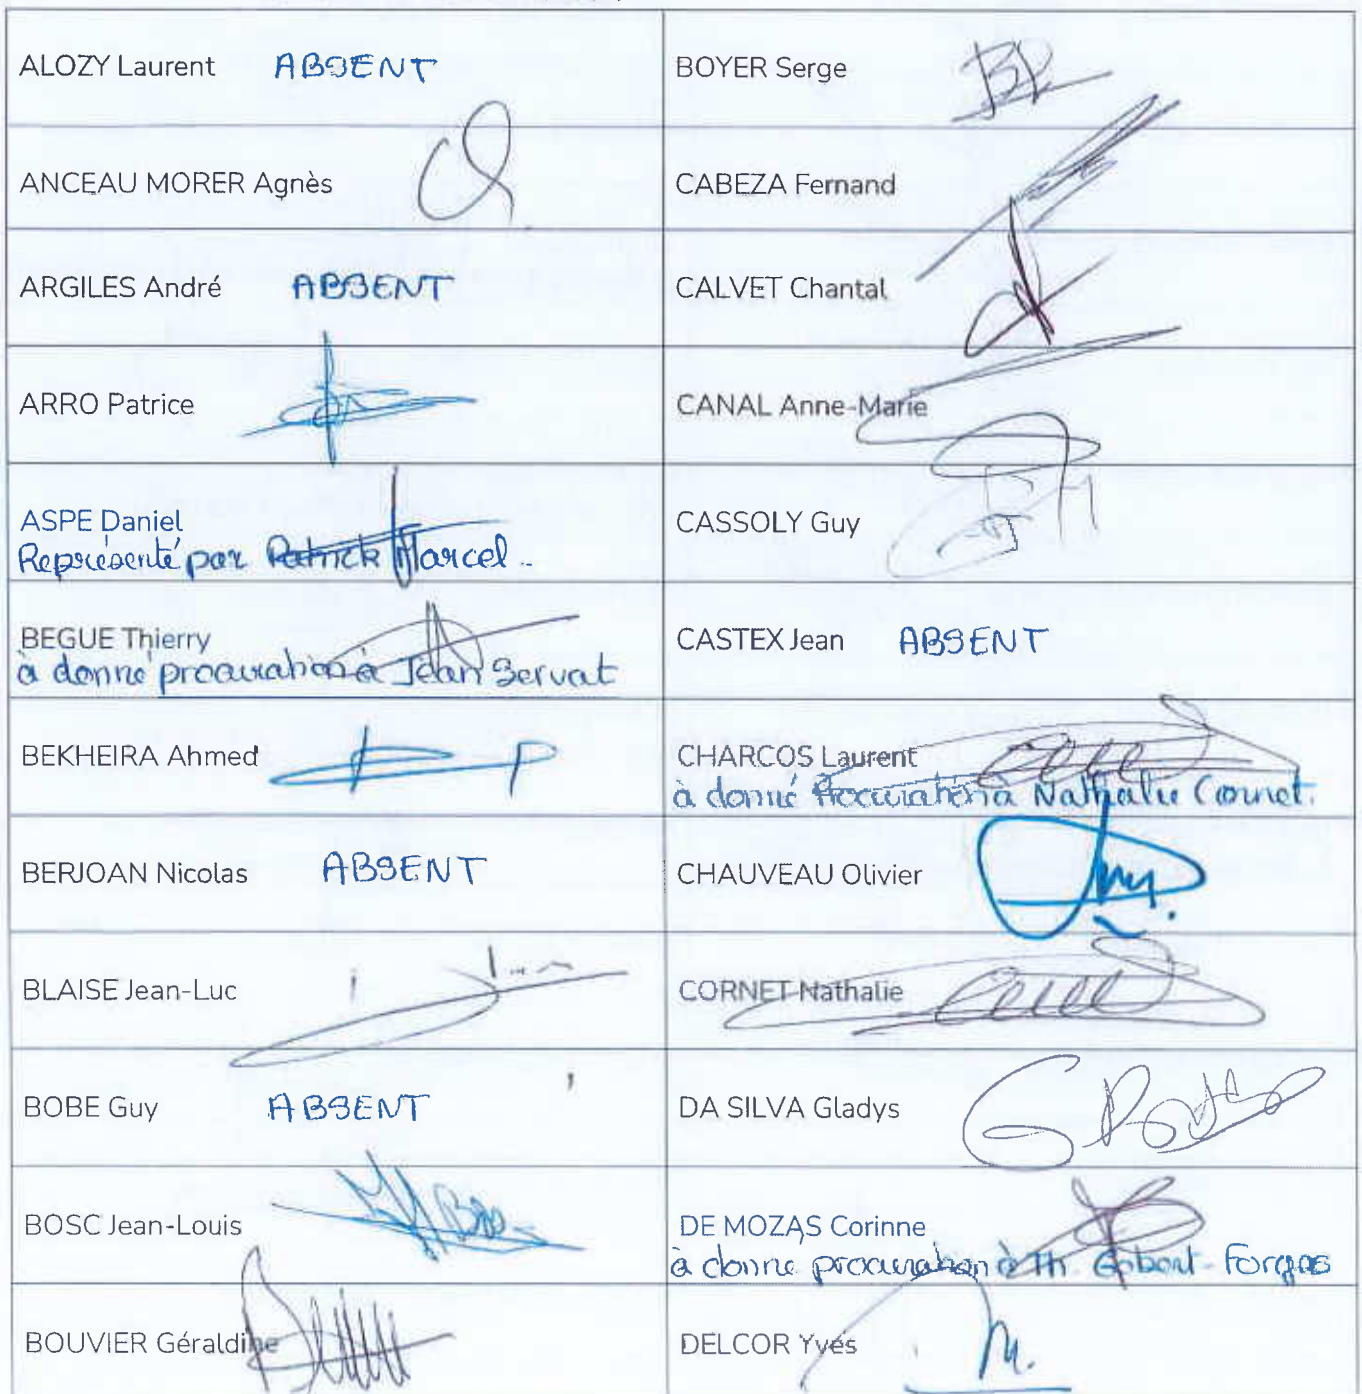 ALOZY Laurent ABSENT
BOYER Serge
ANCEAU MORER Agnès
CABEZA Fernand
ARGILES André ABSENT
CALVET Chantal
ARRO Patrice
CANAL Anne-Marie
ASPE Daniel
Représenté par Patrick Marcel
CASSOLY Guy
BEGUE Thierry
à donné procuration à Jean Servat
CASTEX Jean ABSENT
BEKHEIRA Ahmed
CHARCOS Laurent
à donné Procuration à Nathalie Cornet.
BERJOAN Nicolas ABSENT
CHAUVEAU Olivier
BLAISE Jean-Luc
CORNET Nathalie
BOBE Guy ABSENT
DA SILVA Gladys
BOSC Jean-Louis
DE MOZAS Corinne
à donné procuration à Th. Gobert-Forgas
BOUVIER Géraldine
DELCOR Yves